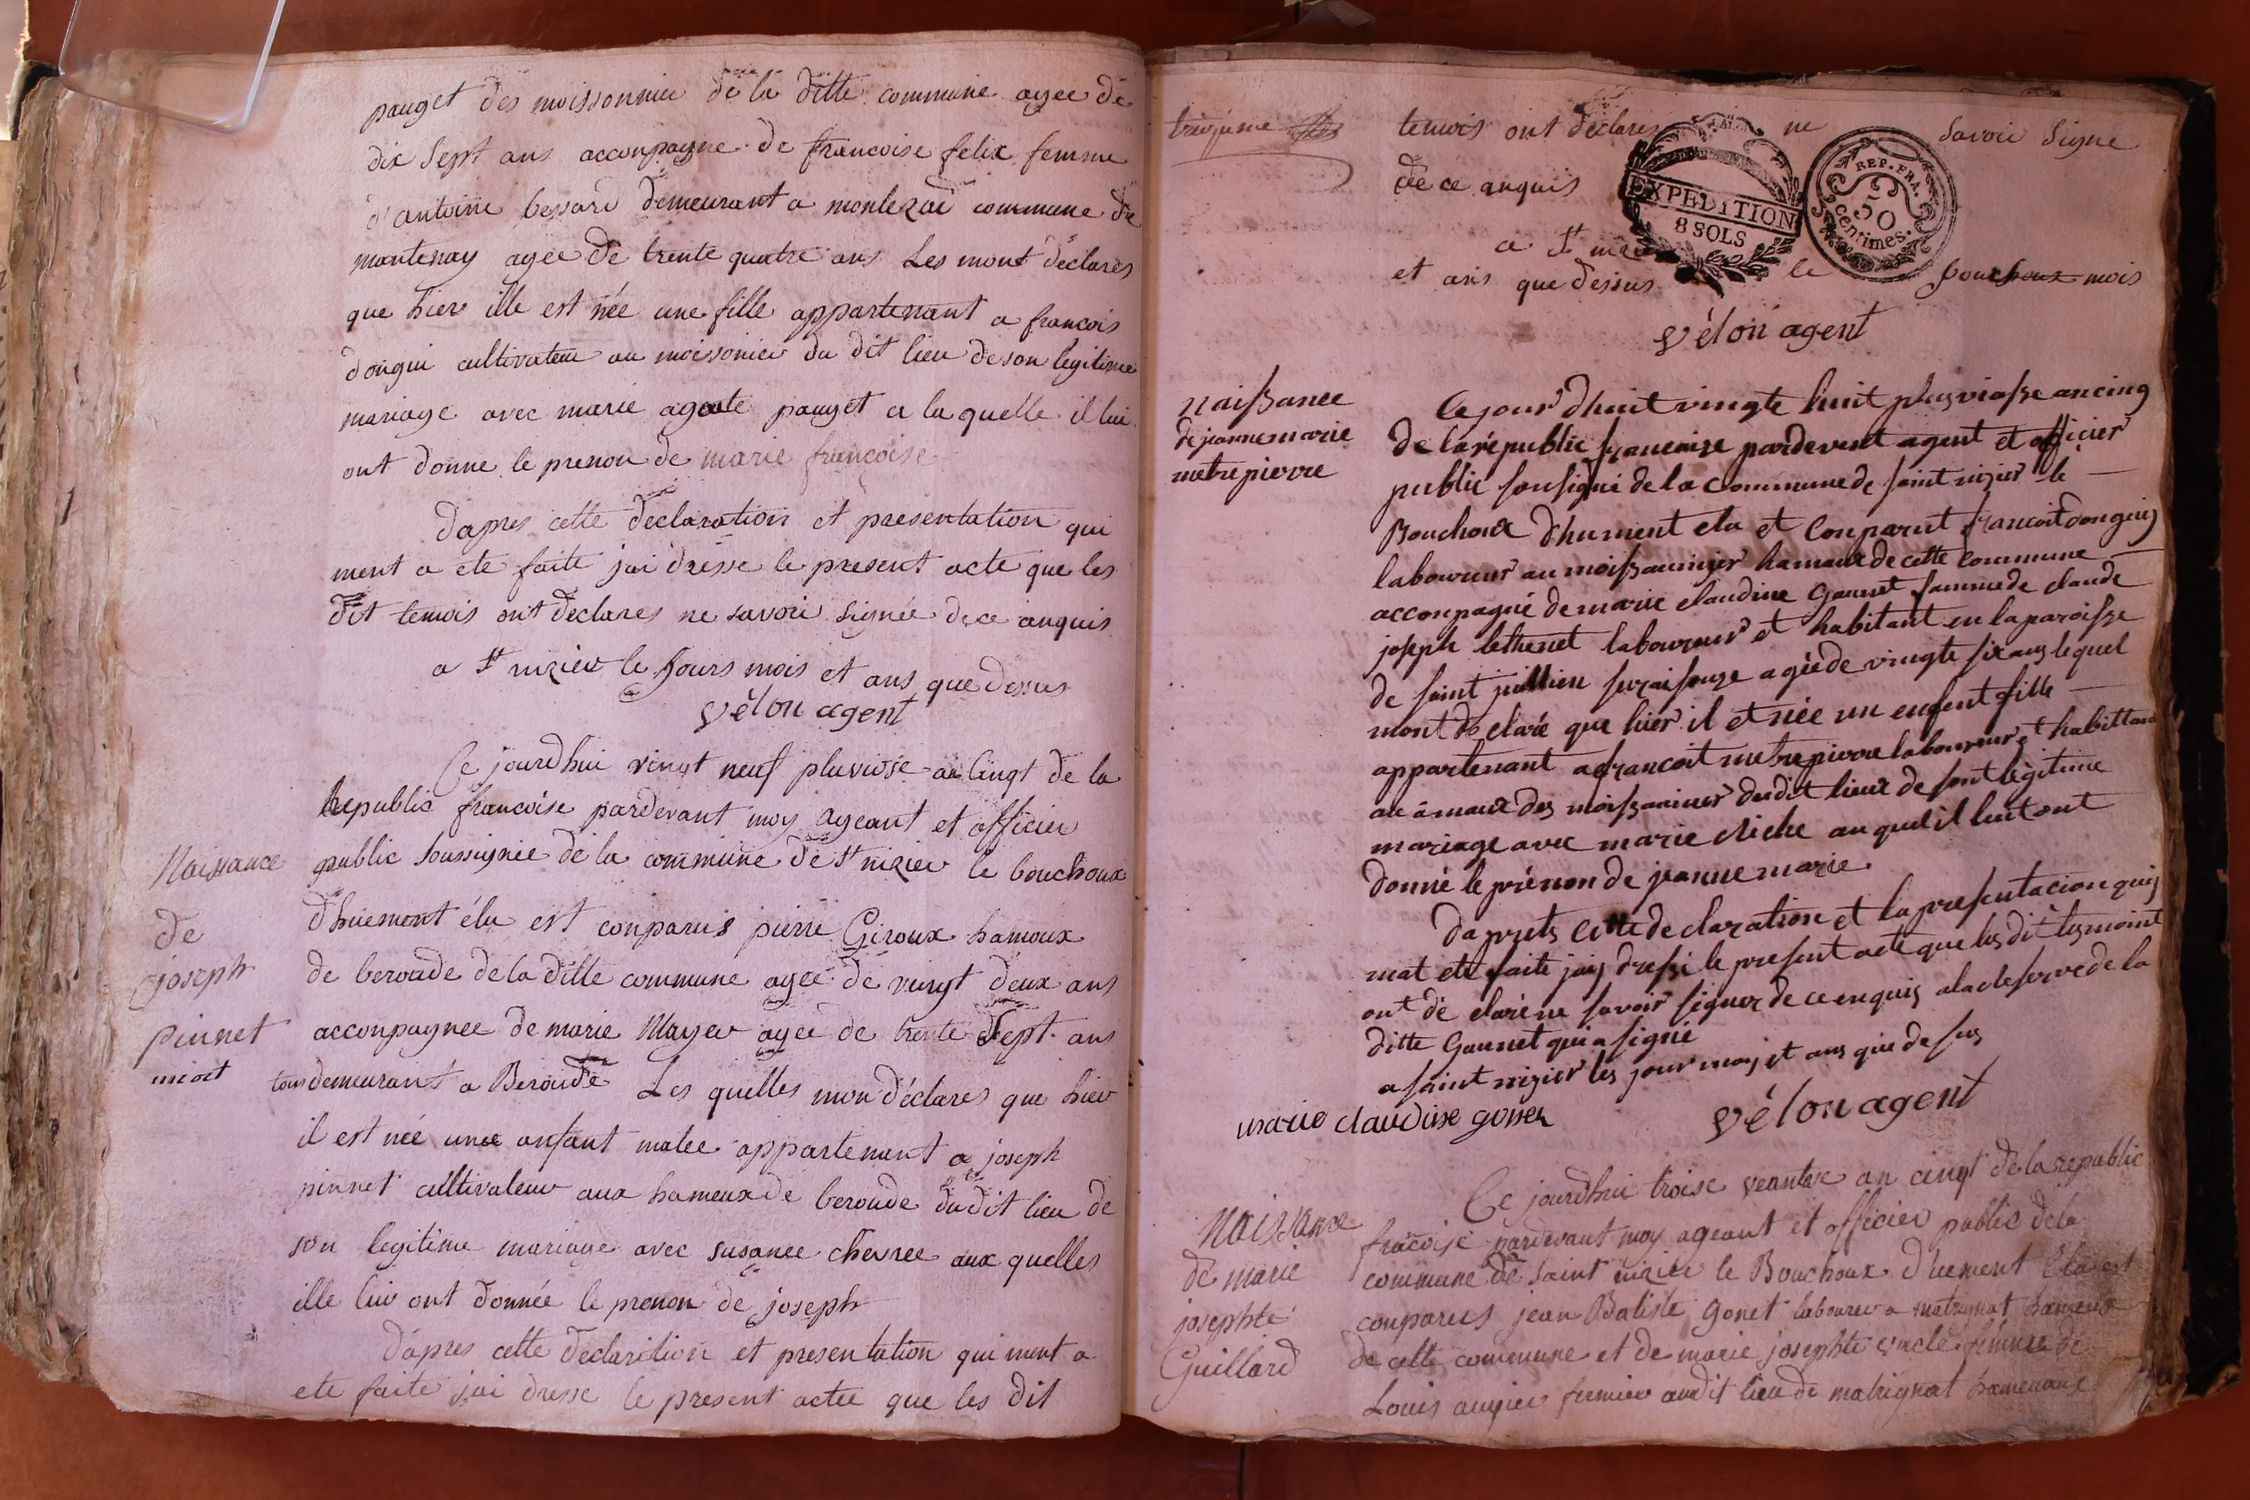 pauget des moissonnier de la ditte commune agee de
dix sept ans acconpagne de francoise felix femme
d'antoine bessard demeurant a montezai commune de
montenay agee de trente quatre ans Les mont declares
que hier ille est née une fille appartenant a francois
dongui cultivateur au moissonier du dit lieu de son legitime
mariage avec marie agate pauget a la quelle il lui
ont donne le prenon de marie françoise
Dapres cette declaration et presentation qui
ment a ete faite jai dresse le present acte que les
dit temois ont declares ne savoir signée de ce anquis
a St nizier le jours mois et ans que dessus
vélon agent
Ce jourdhui vingt neuf pluviose an Cinqt de la
Republic francoise pardevant moy ageant et officier
public soussignée de la commune de St nizier le bouchoux
d'huement élu est conparus pierre Giroux hamoux
de beroude de la ditte commune agee de vingt deux ans
acconpagnee de marie Mayer agee de trente sept ans
tous demeurant a Beroude Les quelles mon déclares que hier
il est née unee anfant malee appartenant a joseph
pinnet cultivateur aux hameux de beroude du dit lieu de
son legitime mariage avec susanee chevree aux quelles
ille lui ont donnée le prenon de joseph
Dapres cette declarition et presentation qui ment a
ete faite jai dresse le present actee que les dit
Naissance
de
joseph
pinnet
mort
temois ont declares ne savoir signe
de ce anquis
a St nizier le bouchoux mois
et ans que dessus
EXPEDITION
8 SOLS
REP. FRA.
50
centimes.
vélon agent
naissance
de jeanne marie
metrepierre
Ce jour dhuit vingte huit plusviosse an cinq
de la républic francaize pardevent agent et officier
public sousigné de la commune de saint nizier le
Bouchoux dhument elu et Conparut francoit donguy
laboureur au moissannier hamaux de cette commune
acconpagné de marie claudine Gaunet famme de claude
joseph lethenet laboureur et habitant en la paroisse
de saint jullien agée de vingte six ans lequel
mont de claré que hier il et née un enfent fille
appartenant a francoit metrepierre laboureur et habittant
au amaux des moissanier du dit lieux de sont légitime
mariage avec marie cliche au quel il luit ont
donné le prénon de jeanne marie
Daprets cette declaration et la presentacion quis
mat ete faite jais dressé le present acte que les dit tesmoint
ont dé claré ne savoir signer de ce enquis a la deserve de la
ditte Gaunet qui a signé
a saint nizier les jour mois et ans que de sus
marie claudine gonnet
vélon agent
Ce jourdhui troise veantose an cinqt de la republic
fracoise pardevant moy ageant et officier public de la
commune de Saint nizier le Bouchoux d'uement Elu est
conparus jean Batiste gonet laboureur a matrignat hameux
de cette commune et de marie josephte vacle femme de
Louis augier fermier audit lieu de matrignat hameaux
Naissance
de marie
josephte
Guillard